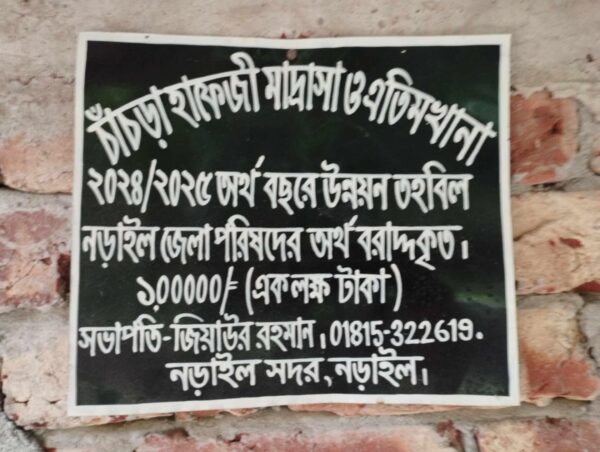 চাঁচড়া হাফেজী মাদ্রাসা ও এতিমখানা
২০২৪/২০২৫ অর্থ বছরে উন্নয়ন তহবিল
নড়াইল জেলা পরিষদের অর্থ বরাদ্দকৃত।
১,00000/= (এক লক্ষ টাকা)
সভাপতি-জিয়াউর রহমান। 01815-322619.
নড়াইল সদর, নড়াইল।